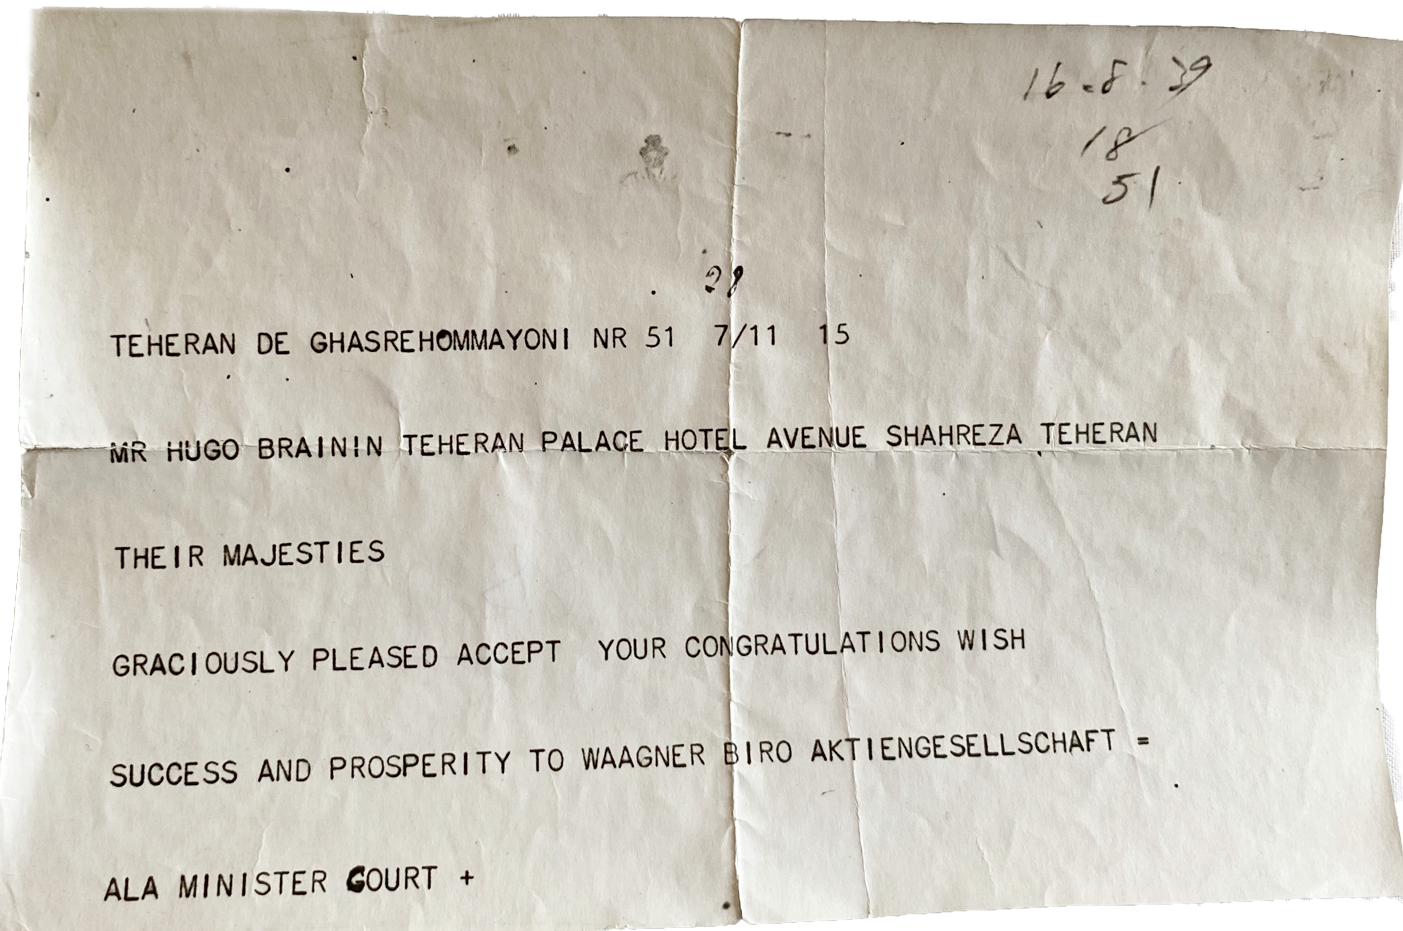 16.8.39
18
51
28
TEHERAN DE GHASREHOMMAYONI NR 51 7/11 15
MR HUGO BRAININ TEHERAN PALACE HOTEL AVENUE SHAHREZA TEHERAN
THEIR MAJESTIES
GRACIOUSLY PLEASED ACCEPT YOUR CONGRATULATIONS WISH
SUCCESS AND PROSPERITY TO WAAGNER BIRO AKTIENGESELLSCHAFT =
ALA MINISTER COURT +